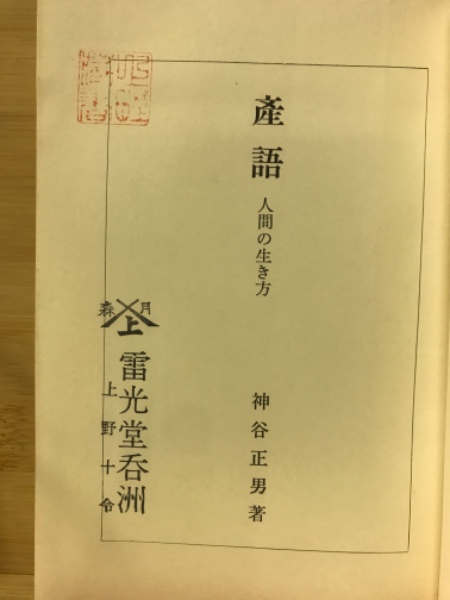 産語
人間の生き方
神谷正男著
森 上 月
雷光堂呑洲
上野十令